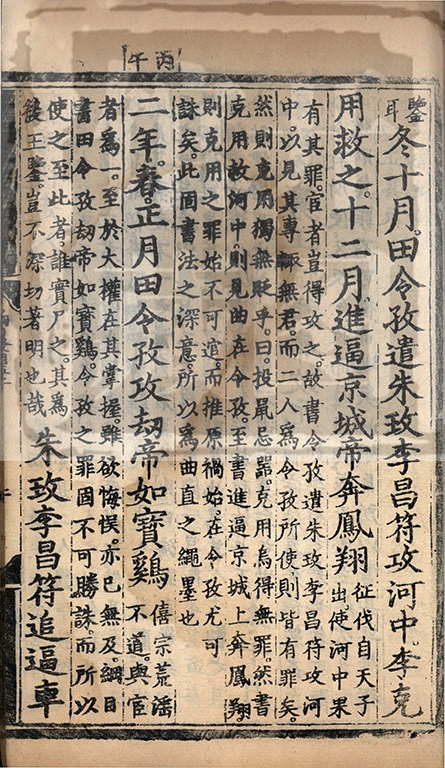 丙午
鑑
耳
冬十月。田令孜遣朱玫李昌符攻河中。李克
用救之。十二月。進逼京城帝奔鳳翔
征伐自天子
出。使河中果
有其罪。宦者豈得攻之。故書令孜遣朱玫李昌符攻河
中。以見其專輒無君。而二人爲令孜所使則皆有罪矣。
然則克用獨無貶乎。曰。投鼠忌器。克用烏得無罪。然書
克用救河中。則見曲在令孜。至書進逼京城上奔鳳翔。
則克用之罪始不可逭。而推原禍始。在令孜尤可
誅矣。此固書法之深意。所以爲曲直之繩墨也
二年。春。正月田令孜攻劫帝如寶鷄
僖宗荒淫
不道。與宦
者爲一。至於大權在其掌握。雖欲悔悮。亦已無及。綱目
書田令孜劫帝如寶鷄。令孜之罪固不可勝誅。而所以
使之至此者。誰實尸之。其爲
後王鑒。豈不深切著明也哉
朱玫李昌符追逼車